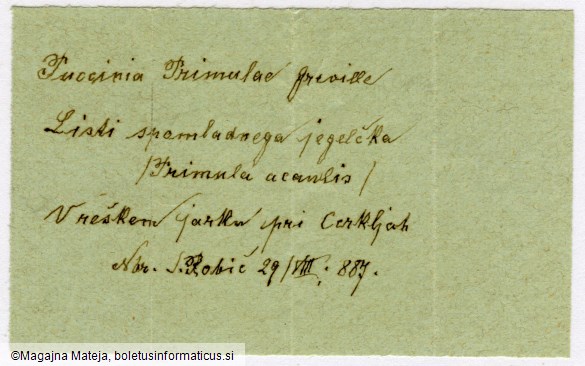 Puccinia Primulae Greville
Listi spomladnega jegelčka
/Primula acaulis/
V reškem jarku pri Cerkljah
Nbr. S. Robič 29/VIII. 887.
©Magajna Mateja, boletusinformaticus.si